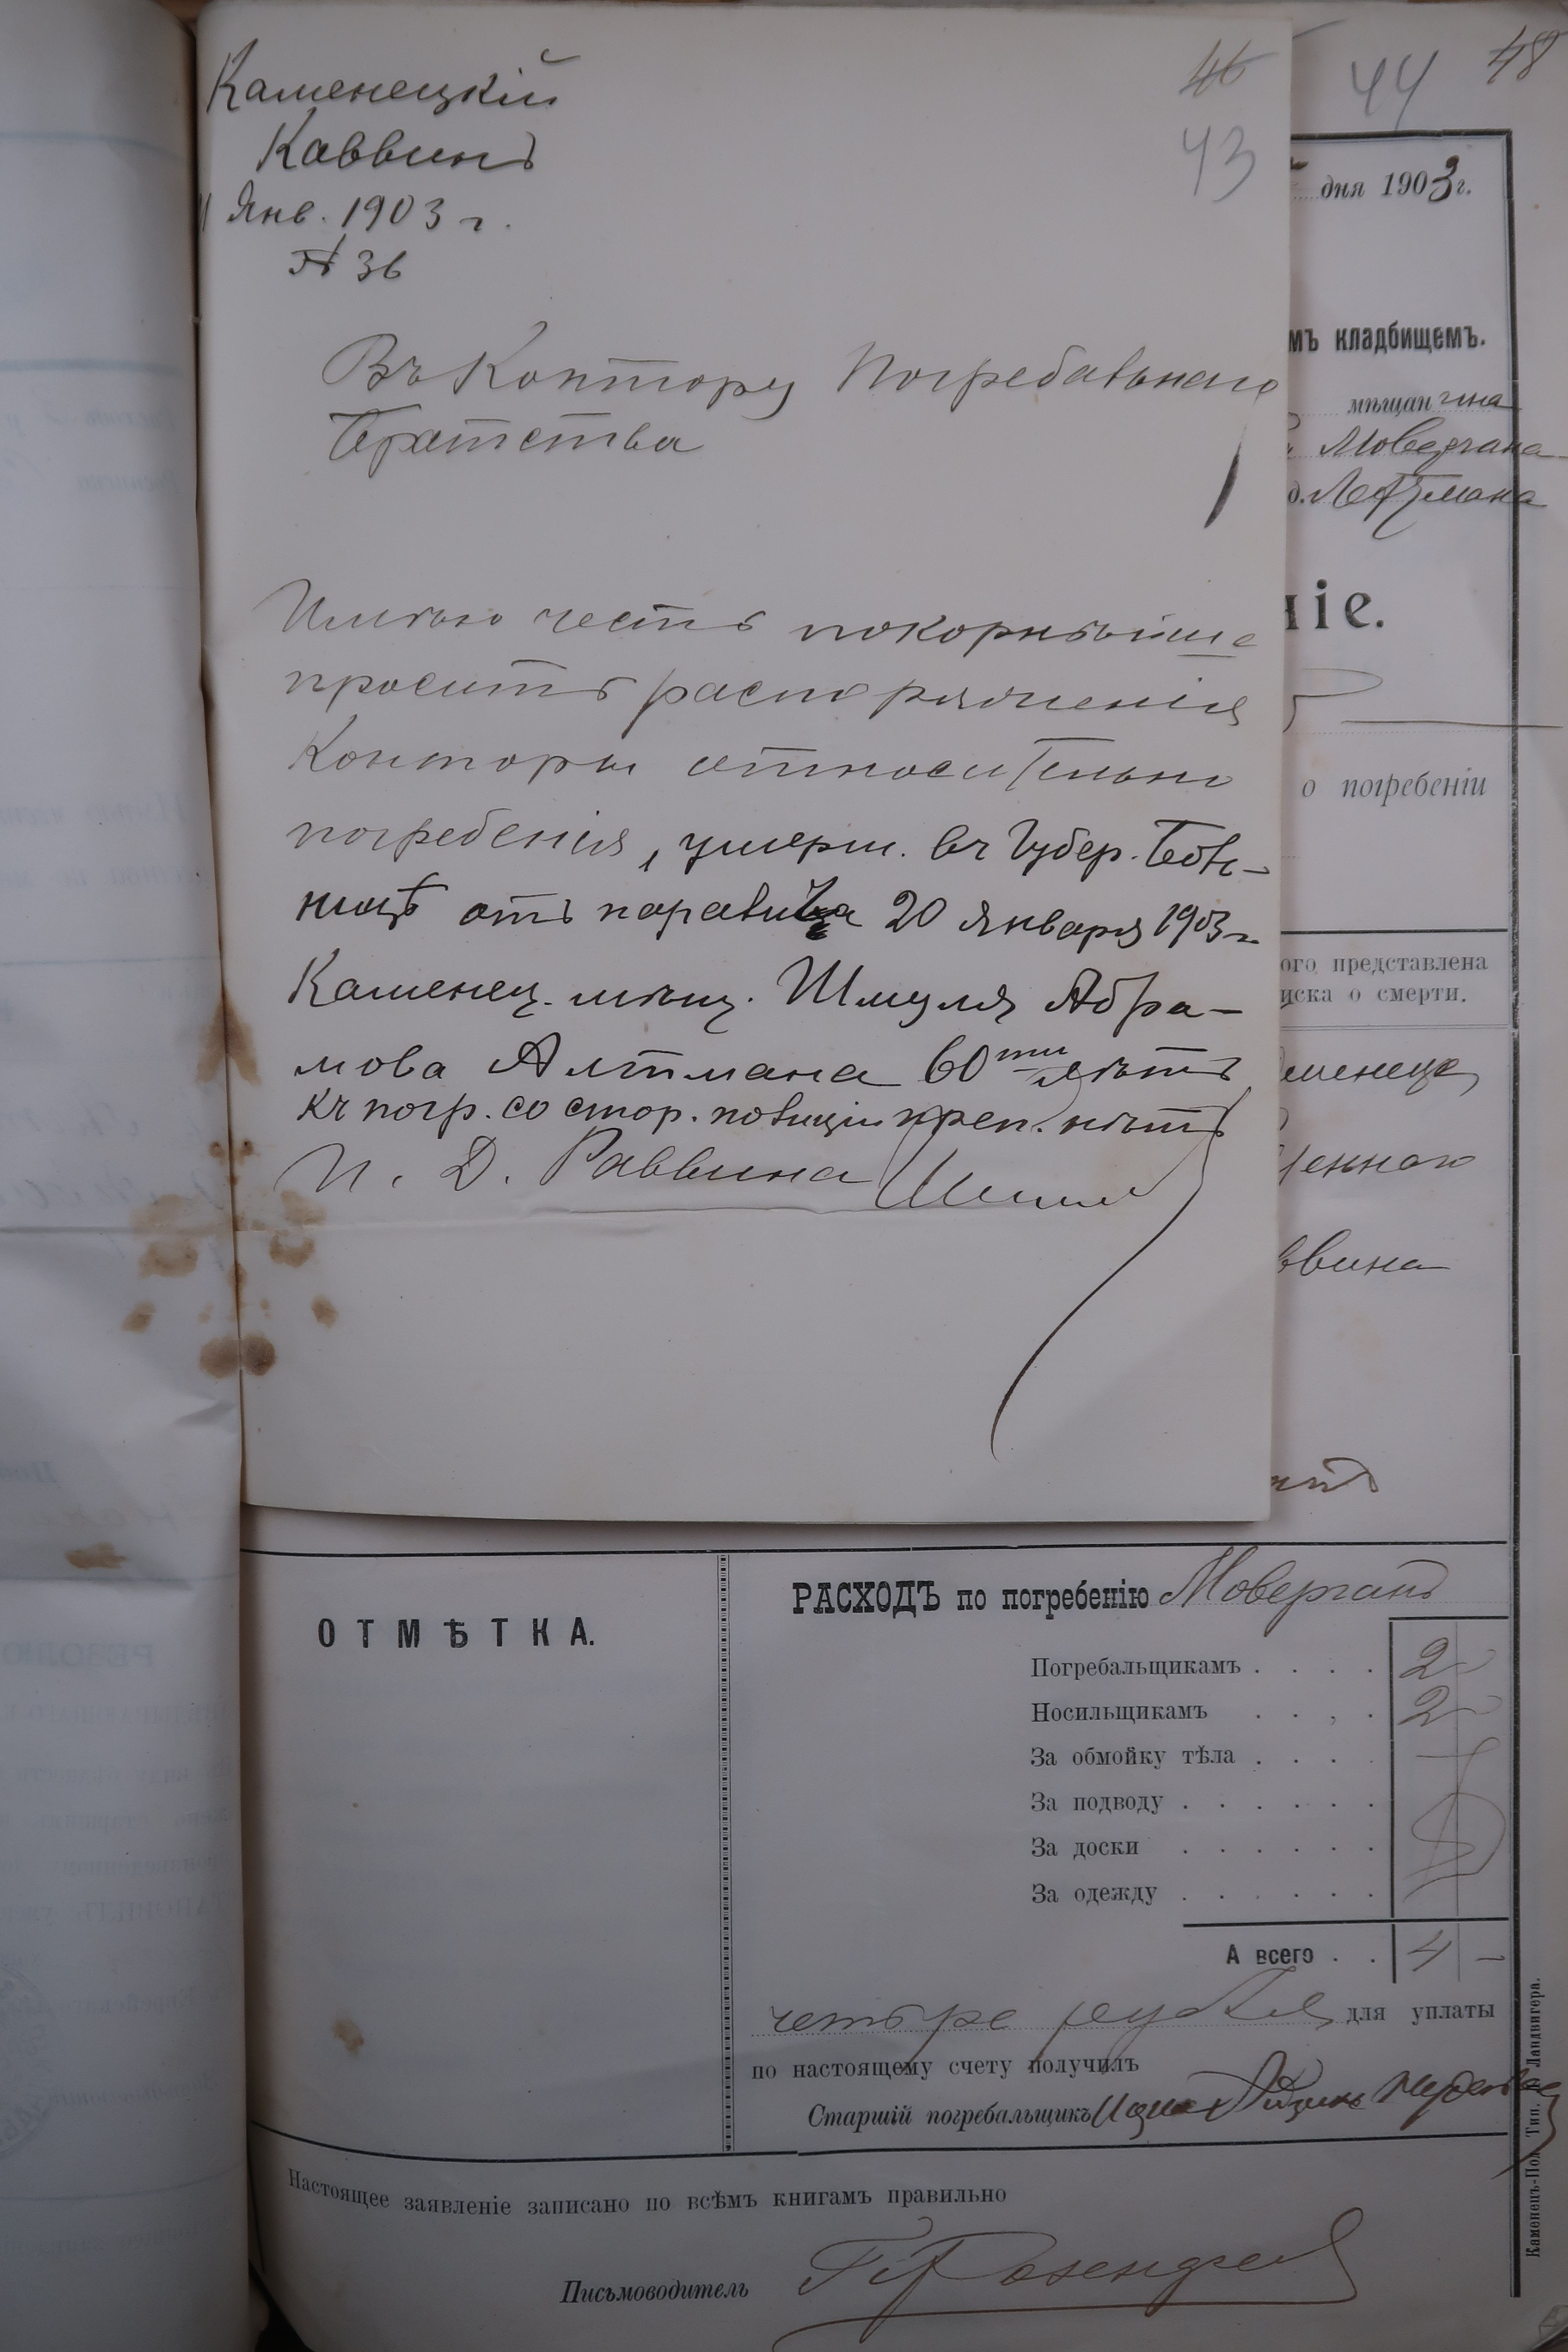 Каменецкій
Каввинъ
Янв. 1903 г.
№ 36
46
43
Въ Контору Погребальнаго
Братства
Имѣю честь покорнѣйше
просить распоряженія
Конторы относительно
погребенія, умерш. въ Губер. боль-
ницѣ отъ паралича 20 Января 1903 г
Каменец. мѣщ. Шмуля Абра-
мова Алтмана 60ти лѣтъ
Къ погр. со стор. полиціи преп. нѣтъ
И. Д. Раввина
44
48
дня 1903 г.
мъ кладбищемъ.
мѣщанина
Мовергана
д.
ніе.
о погребеніи
ого представлена
иска о смерти.
аменецъ
еннаго
ввина
ОТМѢТКА.
РАСХОДЪ по погребенію Моверганъ
Погребальщикамъ . . . . 2 -
Носильщикамъ . . . . 2 -
За обмойку тѣла . . . .
За подводу . . . . . .
За доски . . . . . .
За одежду . . . . . .
А всего . . 4 -
четыре рубля для уплаты
по настоящему счету получилъ
Старшій погребальщикъ
Настоящее заявленіе записано по всѣмъ книгамъ правильно
Письмоводитель
Каменецъ-Под. Тип. Ландвигера.